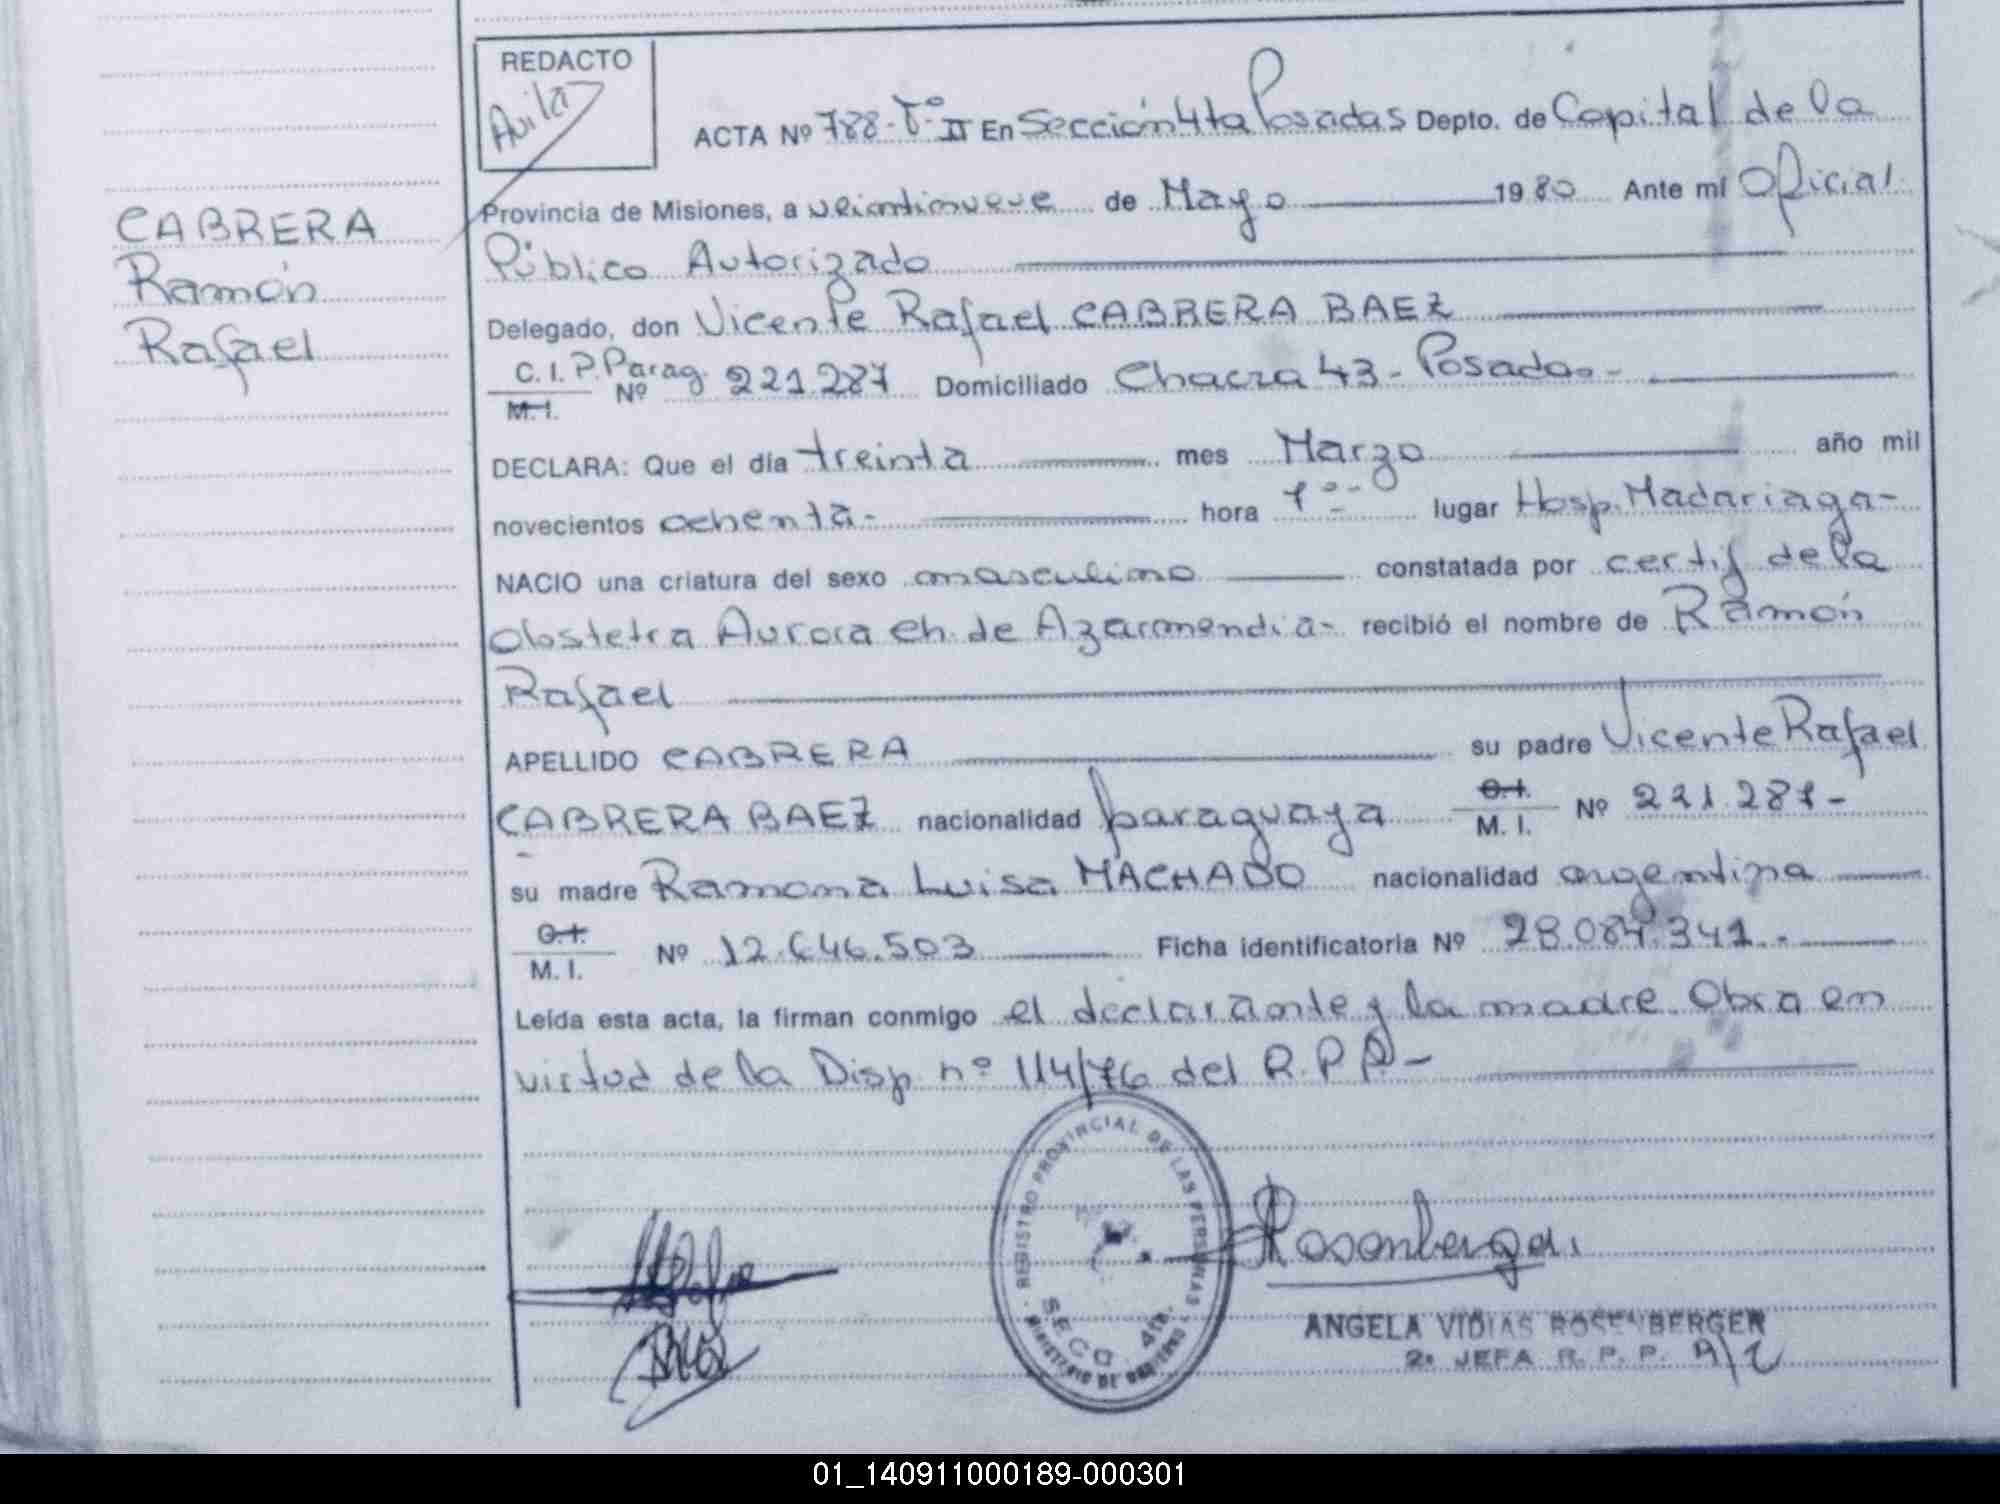 REDACTO
Avila
ACTA Nº 788-Tº II En Sección 4ta Posadas Depto. de Capital de la
Provincia de Misiones, a veintinueve de Mayo 1980 Ante mí Oficial
Público Autorizado
Delegado, don Vicente Rafael CABRERA BAEZ
C. I. P. Parag. Nº 221.287 Domiciliado Chacra 43 - Posadas -
M. I.
DECLARA: Que el día treinta mes Marzo año mil
novecientos ochenta - hora 1º - lugar Hosp. Madariaga -
NACIO una criatura del sexo masculino constatada por certif de la
obstetra Aurora Ch. de Azarmendia - recibió el nombre de Ramón
Rafael
APELLIDO CABRERA su padre Vicente Rafael
CABRERA BAEZ nacionalidad paraguaya C.I. M. I. Nº 221.287 -
su madre Ramona Luisa MACHADO nacionalidad argentina
C.I. M. I. Nº 12.646.503 Ficha identificatoria Nº 28.084.341.-
Leída esta acta, la firman conmigo el declarante y la madre. Obra en
virtud de la Disp nº 114/76 del R.P.P. -
CABRERA
Ramón
Rafael
REGISTRO PROVINCIAL DE LAS PERSONAS
SECC. 4ta.
MINISTERIO DE GOBIERNO
Rosenberger
ANGELA VIDIAS ROSENBERGER
2º JEFA R. P. P. A/C
01_140911000189-000301